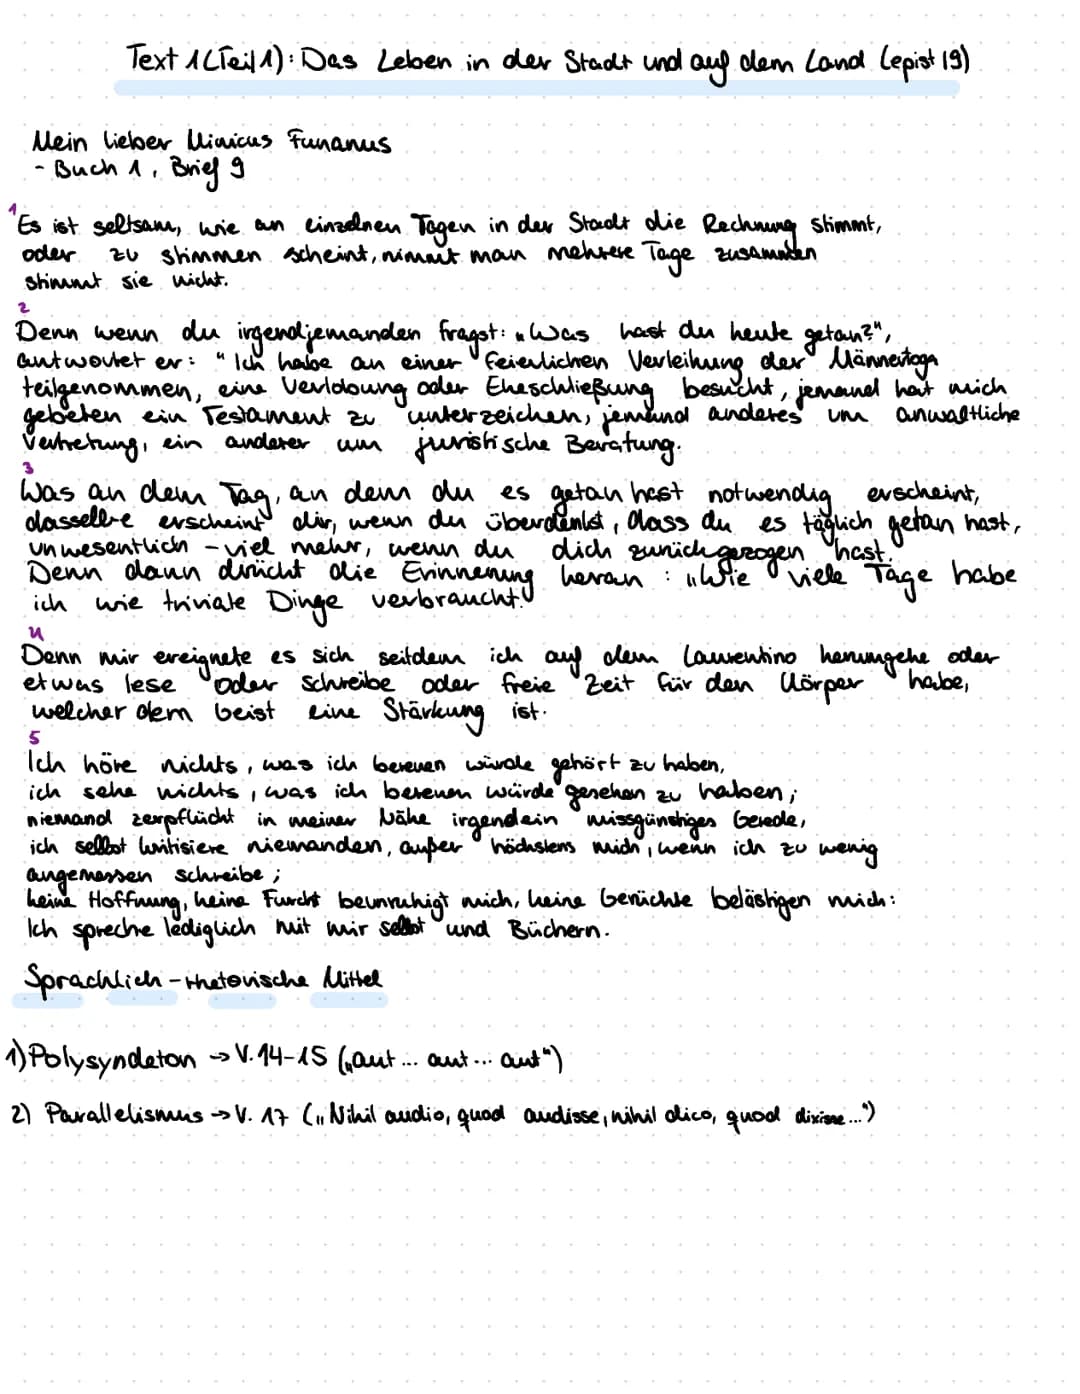 Text 1 (Teil 1): Das Leben in der Stadt und auf dem Land (epist 19)
Mein lieber Minicus Funanus
- Buch 1, Brief 9
1
Es ist seltsam, wie an einzelnen Tagen in der Stadt die Rechnung stimmt,
oder zu stimmen scheint, nimmt man mehrere Tage zusammen
stimmt sie nicht.
2
Denn wenn du irgendjemanden fragst: „Was hast du heute getan?",
antwortet er: "Ich habe an einer feierlichen Verleihung der Männertoga
teilgenommen, eine Verlobung oder Eheschließung besucht, jemand hat mich
gebeten ein Testament zu unterzeichen, jemand anderes um anwaltliche
Vertretung, ein anderer um juristische Beratung.
3
Was an dem Tag, an dem du es getan hast notwendig erscheint,
dasselbe erscheint dir, wenn du überdenkst, dass du es täglich getan hast,
unwesentlich - viel mehr, wenn du dich zurückgezogen hast.
Denn dann drückt die Erinnerung heran: „Wie viele Tage habe
ich wie triviale Dinge verbraucht!
4
Denn mir ereignete es sich seitdem ich auf dem Laurentino herumgehe oder
etwas lese oder schreibe oder freie Zeit für den Körper habe,
welcher dem Geist eine Stärkung ist.
5
Ich höre nichts, was ich bereuen würde gehört zu haben,
ich sehe nichts, was ich bereuen würde gesehen zu haben;
niemand zerpflückt in meiner Nähe irgendein missgünstiges Gerede,
ich selbst kritisiere niemanden, außer höchstens mich, wenn ich zu wenig
angemessen schreibe;
keine Hoffnung, keine Furcht beunruhigt mich, keine Gerüchte belästigen mich:
Ich spreche lediglich mit mir selbst und Büchern.
Sprachlich-rhetorische Mittel
1) Polysyndeton → V. 14-15 („aut ... aut ... aut")
2) Parallelismus → V. 17 („Nihil audio, quod audisse, nihil dico, quod dixisse...")